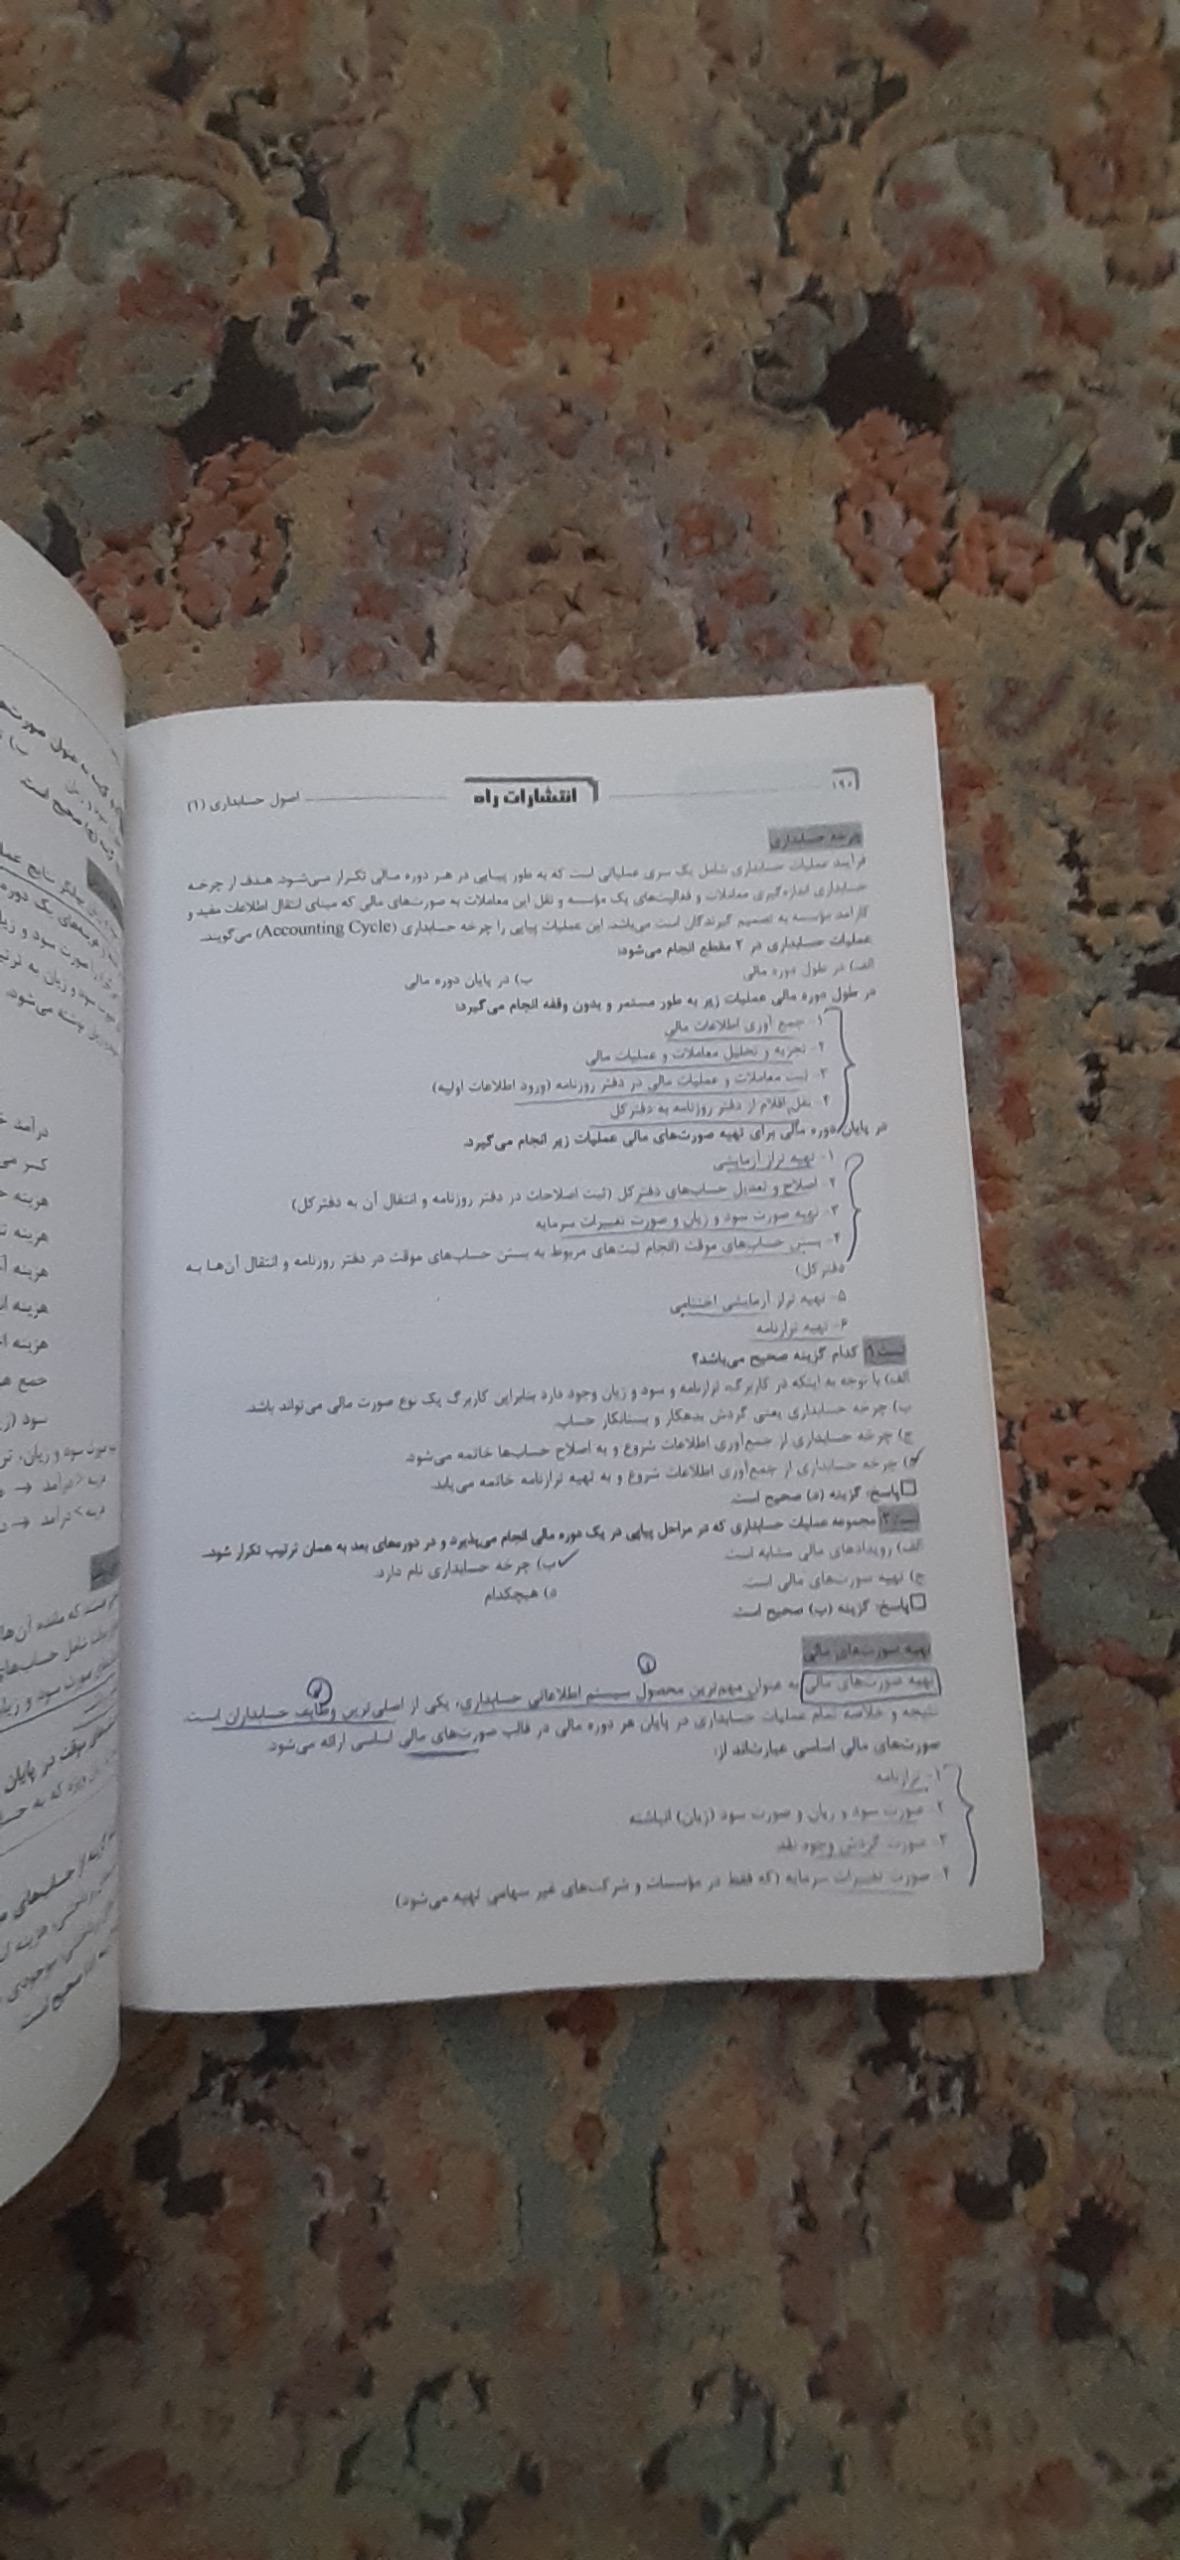 ۱۹۰
انتشارات راه
اصول حسابداری (۱)
چرخه حسابداری
فرآیند عملیات حسابداری شامل یک سری عملیاتی است که به طور پیاپی در هر دوره مالی تکرار می‌شود. هدف از چرخه
حسابداری اندازه‌گیری معاملات و فعالیت‌های یک مؤسسه و نقل این معاملات به صورت‌های مالی که مبنای انتقال اطلاعات مفید و
کارآمد مؤسسه به تصمیم گیرندگان است می‌باشد. این عملیات پیاپی را چرخه حسابداری (Accounting Cycle) می‌گویند.
عملیات حسابداری در ۲ مقطع انجام می‌شود:
الف) در طول دوره مالی ب) در پایان دوره مالی
در طول دوره مالی عملیات زیر به طور مستمر و بدون وقفه انجام می‌گیرد:
۱- جمع آوری اطلاعات مالی
۲- تجزیه و تحلیل معاملات و عملیات مالی
۳- ثبت معاملات و عملیات مالی در دفتر روزنامه (ورود اطلاعات اولیه)
۴- نقل اقلام از دفتر روزنامه به دفترکل
در پایان دوره مالی برای تهیه صورت‌های مالی عملیات زیر انجام می‌گیرد.
۱- تهیه تراز آزمایشی
۲- اصلاح و تعدیل حساب‌های دفترکل (ثبت اصلاحات در دفتر روزنامه و انتقال آن به دفترکل)
۳- تهیه صورت سود و زیان و صورت تغییرات سرمایه
۴- بستن حساب‌های موقت (انجام ثبت‌های مربوط به بستن حساب‌های موقت در دفتر روزنامه و انتقال آن‌ها به
دفترکل)
۵- تهیه تراز آزمایشی اختتامی
۶- تهیه ترازنامه
تست۱ کدام گزینه صحیح می‌باشد؟
الف) با توجه به اینکه در کاربرگ، ترازنامه و سود و زیان وجود دارد بنابراین کاربرگ یک نوع صورت مالی می‌تواند باشد.
ب) چرخه حسابداری یعنی گردش بدهکار و بستانکار حساب.
ج) چرخه حسابداری از جمع‌آوری اطلاعات شروع و به اصلاح حساب‌ها خاتمه می‌شود.
د) چرخه حسابداری از جمع‌آوری اطلاعات شروع و به تهیه ترازنامه خاتمه می‌یابد.
پاسخ: گزینه (د) صحیح است.
تست۲ مجموعه عملیات حسابداری که در مراحل پیاپی در یک دوره مالی انجام می‌پذیرد و در دوره‌های بعد به همان ترتیب تکرار شود.
الف) رویدادهای مالی مشابه است. ب) چرخه حسابداری نام دارد.
ج) تهیه صورت‌های مالی است. د) هیچکدام
پاسخ: گزینه (ب) صحیح است.
تهیه صورت‌های مالی
تهیه صورت‌های مالی به عنوان مهم‌ترین محصول سیستم اطلاعاتی حسابداری، یکی از اصلی‌ترین وظایف حسابداران است.
نتیجه و خلاصه تمام عملیات حسابداری در پایان هر دوره مالی در قالب صورت‌های مالی اساسی ارائه می‌شود.
صورت‌های مالی اساسی عبارت‌اند از:
۱- ترازنامه
۲- صورت سود و زیان و صورت سود (زیان) انباشته
۳- صورت گردش وجوه نقد
۴- صورت تغییرات سرمایه (که فقط در مؤسسات و شرکت‌های غیر سهامی تهیه می‌شود)